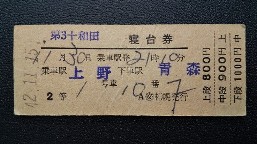 第3十和田 寝台券
1月30日 乗車駅発 2時10分
乗車駅 上野 下車駅 青森
2等 1号車 10番 下
上段800円
中段900円
下段1000円